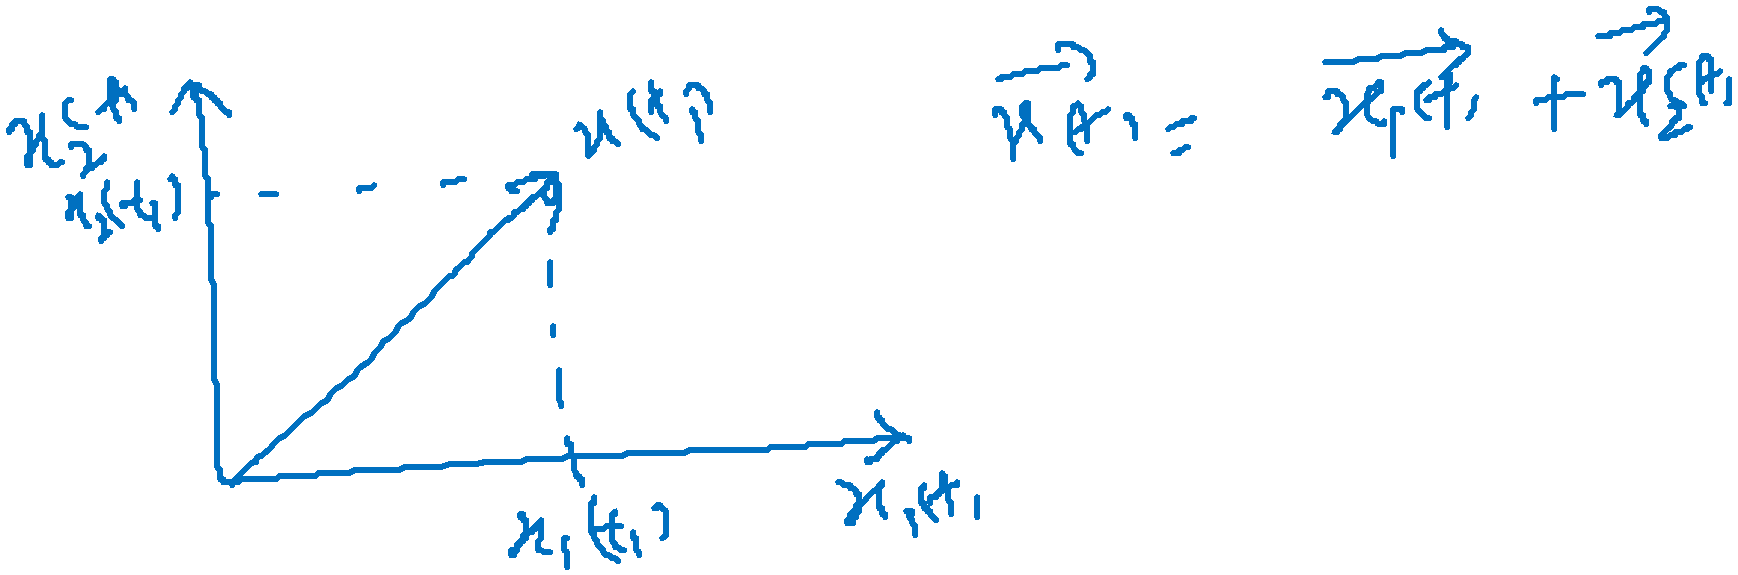 x₂(t
x₂(t₁)
x(t₁)
x₁(t₁)
x₁(t)
x(t) = x₁(t) + x₂(t)